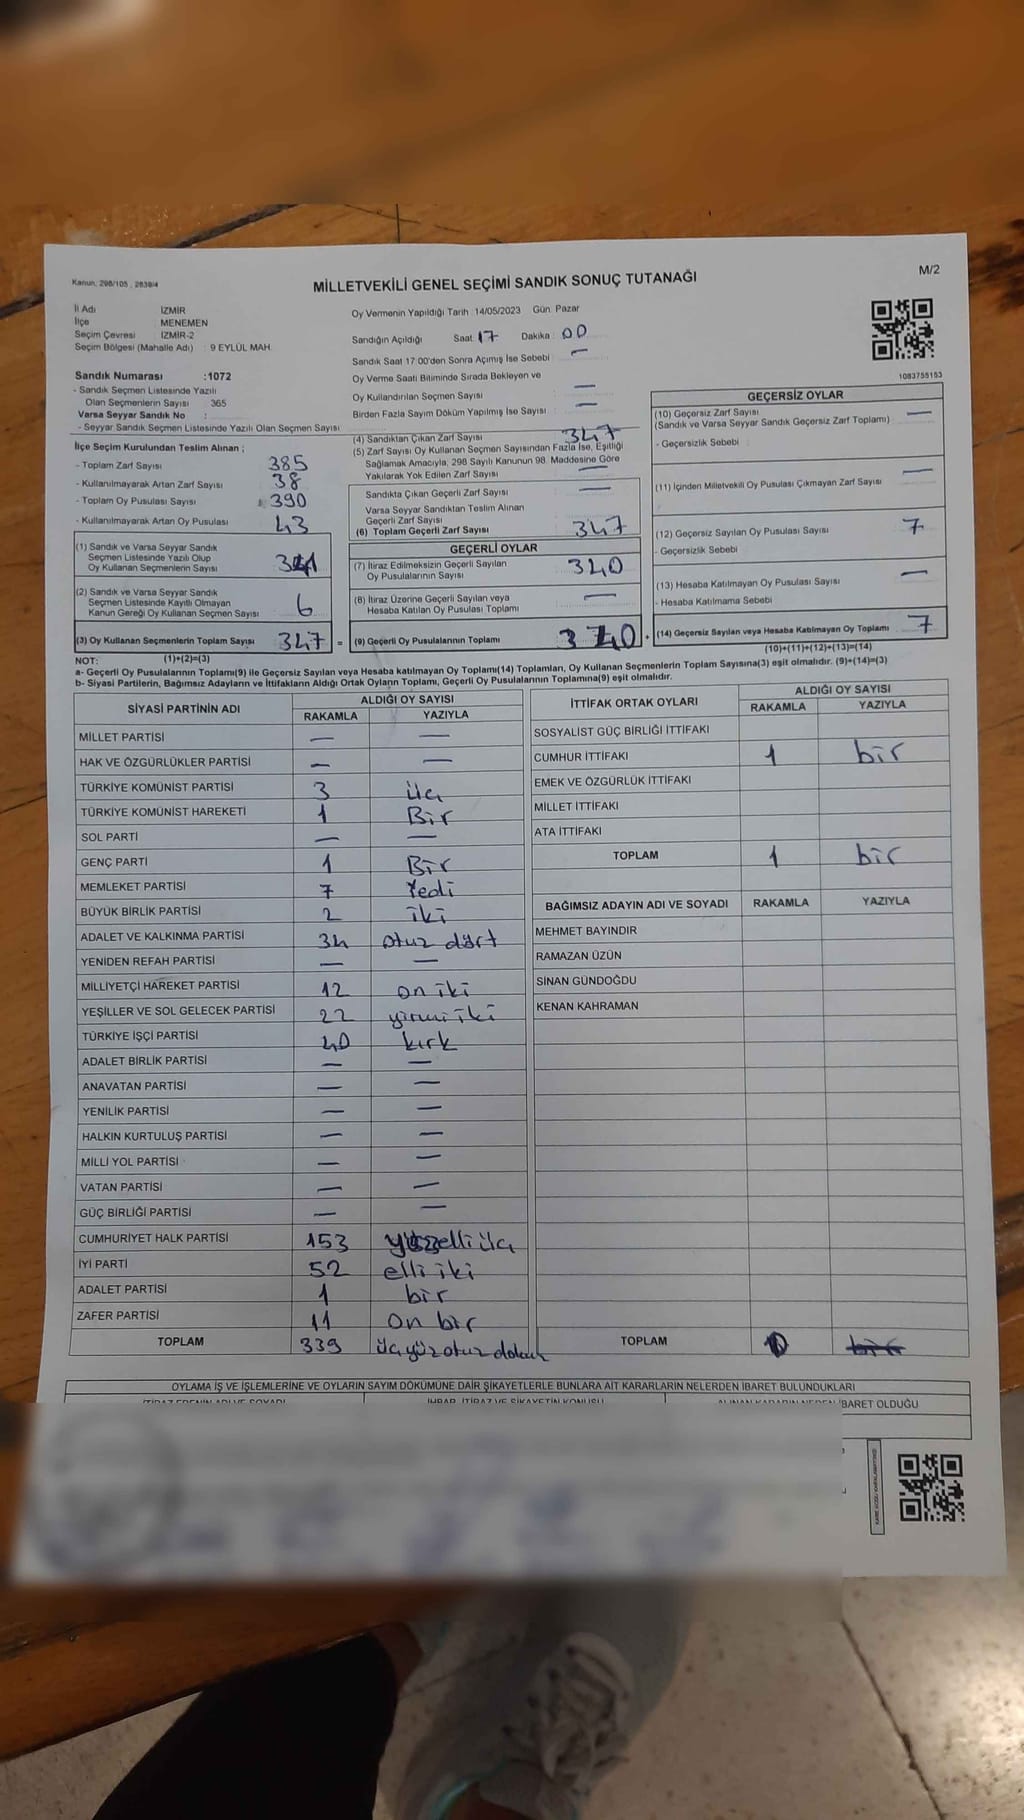 Kanun, 298/105 , 2839/4
MİLLETVEKİLİ GENEL SEÇİMİ SANDIK SONUÇ TUTANAĞI
M/2
İl Adı : İZMİR
İlçe : MENEMEN
Seçim Çevresi : İZMİR-2
Seçim Bölgesi (Mahalle Adı) : 9 EYLÜL MAH.
Sandık Numarası :1072
- Sandık Seçmen Listesinde Yazılı
Olan Seçmenlerin Sayısı : 365
Varsa Seyyar Sandık No :
- Seyyar Sandık Seçmen Listesinde Yazılı Olan Seçmen Sayısı :
Oy Vermenin Yapıldığı Tarih :14/05/2023 Gün: Pazar
Sandığın Açıldığı Saat: 17 Dakika : 00
Sandık Saat 17:00'den Sonra Açımış İse Sebebi : —
Oy Verme Saati Bitiminde Sırada Bekleyen ve
Oy Kullandırılan Seçmen Sayısı : —
Birden Fazla Sayım Döküm Yapılmış İse Sayısı : —
1083755153
İlçe Seçim Kurulundan Teslim Alınan ;
- Toplam Zarf Sayısı : 385
- Kullanılmayarak Artan Zarf Sayısı : 38
- Toplam Oy Pusulası Sayısı : 390
- Kullanılmayarak Artan Oy Pusulası : 43
(1) Sandık ve Varsa Seyyar Sandık
Seçmen Listesinde Yazılı Olup
Oy Kullanan Seçmenlerin Sayısı : 341
(2) Sandık ve Varsa Seyyar Sandık
Seçmen Listesinde Kayıtlı Olmayan
Kanun Gereği Oy Kullanan Seçmen Sayısı : 6
(3) Oy Kullanan Seçmenlerin Toplam Sayısı : 347 =
(1)+(2)=(3)
(4) Sandıktan Çıkan Zarf Sayısı : 347
(5) Zarf Sayısı Oy Kullanan Seçmen Sayısından Fazla İse, Eşitliği
Sağlamak Amacıyla, 298 Sayılı Kanunun 98. Maddesine Göre
Yakılarak Yok Edilen Zarf Sayısı : —
Sandıkta Çıkan Geçerli Zarf Sayısı : —
Varsa Seyyar Sandıktan Teslim Alınan
Geçerli Zarf Sayısı :
(6) Toplam Geçerli Zarf Sayısı : 347
GEÇERLİ OYLAR
(7) İtiraz Edilmeksizin Geçerli Sayılan
Oy Pusulalarının Sayısı : 340
(8) İtiraz Üzerine Geçerli Sayılan veya
Hesaba Katılan Oy Pusulası Toplamı : —
(9) Geçerli Oy Pusulalarının Toplamı : 340 +
GEÇERSİZ OYLAR
(10) Geçersiz Zarf Sayısı : —
(Sandık ve Varsa Seyyar Sandık Geçersiz Zarf Toplamı)
- Geçersizlik Sebebi :
(11) İçinden Milletvekili Oy Pusulası Çıkmayan Zarf Sayısı : —
(12) Geçersiz Sayılan Oy Pusulası Sayısı : 7
- Geçersizlik Sebebi :
(13) Hesaba Katılmayan Oy Pusulası Sayısı : —
- Hesaba Katılmama Sebebi :
(14) Geçersiz Sayılan veya Hesaba Katılmayan Oy Toplamı : 7
(10)+(11)+(12)+(13)=(14)
NOT:
a- Geçerli Oy Pusulalarının Toplamı(9) ile Geçersiz Sayılan veya Hesaba katılmayan Oy Toplamı(14) Toplamları, Oy Kullanan Seçmenlerin Toplam Sayısına(3) eşit olmalıdır. (9)+(14)=(3)
b- Siyasi Partilerin, Bağımsız Adayların ve İttifakların Aldığı Ortak Oyların Toplamı, Geçerli Oy Pusulalarının Toplamına(9) eşit olmalıdır.
SİYASİ PARTİNİN ADI ALDIĞI OY SAYISI
RAKAMLA YAZIYLA
MİLLET PARTİSİ — —
HAK VE ÖZGÜRLÜKLER PARTİSİ — —
TÜRKİYE KOMÜNİST PARTİSİ 3 üç
TÜRKİYE KOMÜNİST HAREKETİ 1 Bir
SOL PARTİ — —
GENÇ PARTİ 1 Bir
MEMLEKET PARTİSİ 7 Yedi
BÜYÜK BİRLİK PARTİSİ 2 iki
ADALET VE KALKINMA PARTİSİ 34 otuz dört
YENİDEN REFAH PARTİSİ — —
MİLLİYETÇİ HAREKET PARTİSİ 12 on iki
YEŞİLLER VE SOL GELECEK PARTİSİ 22 yirmi iki
TÜRKİYE İŞÇİ PARTİSİ 40 kırk
ADALET BİRLİK PARTİSİ — —
ANAVATAN PARTİSİ — —
YENİLİK PARTİSİ — —
HALKIN KURTULUŞ PARTİSİ — —
MİLLİ YOL PARTİSİ — —
VATAN PARTİSİ — —
GÜÇ BİRLİĞİ PARTİSİ — —
CUMHURİYET HALK PARTİSİ 153 yüzelli üç
İYİ PARTİ 52 elli iki
ADALET PARTİSİ 1 bir
ZAFER PARTİSİ 11 on bir
TOPLAM 339 üçyüzotuz dokuz
İTTİFAK ORTAK OYLARI ALDIĞI OY SAYISI
RAKAMLA YAZIYLA
SOSYALİST GÜÇ BİRLİĞİ İTTİFAKI
CUMHUR İTTİFAKI 1 bir
EMEK VE ÖZGÜRLÜK İTTİFAKI
MİLLET İTTİFAKI
ATA İTTİFAKI
TOPLAM 1 bir
BAĞIMSIZ ADAYIN ADI VE SOYADI RAKAMLA YAZIYLA
MEHMET BAYINDIR
RAMAZAN ÜZÜN
SİNAN GÜNDOĞDU
KENAN KAHRAMAN
TOPLAM 0 bir
OYLAMA İŞ VE İŞLEMLERİNE VE OYLARIN SAYIM DÖKÜMÜNE DAİR ŞİKAYETLERLE BUNLARA AİT KARARLARIN NELERDEN İBARET BULUNDUKLARI
İTİRAZ EDENİN ADI VE SOYADI İHBAR, İTİRAZ VE ŞİKAYETİN KONUSU ALINAN KARARIN NEDEN İBARET OLDUĞU